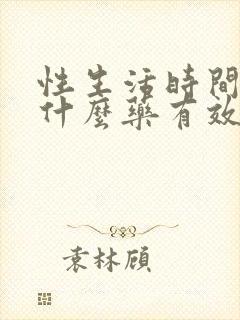 性生活時間
什麼藥有效
袁林頎